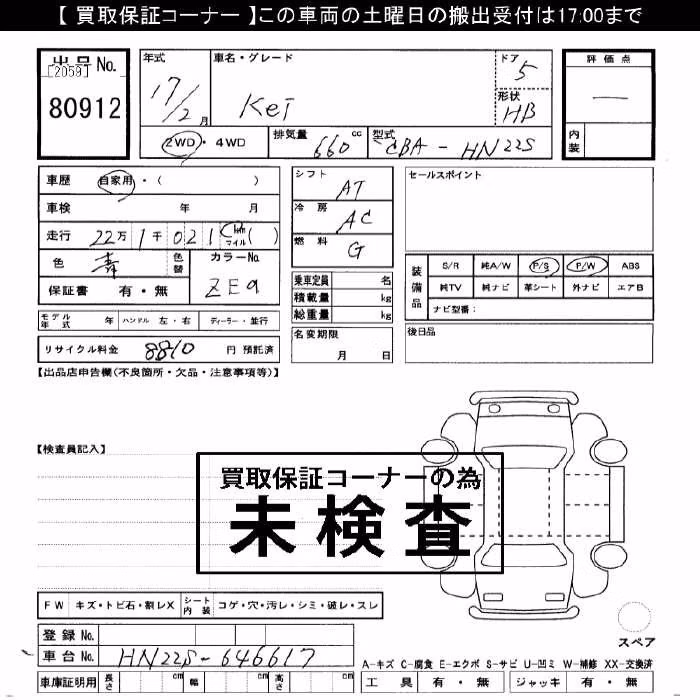 【 買取保証コーナー 】この車両の土曜日の搬出受付は17:00まで
出品 No.
[2059]
80912
年式
17/2 月
車名・グレード
Kei
ドア
5
形状
HB
評価点
—
内装
2WD・4WD
排気量
660 cc
型式
CBA - HN22S
車歴
自家用・( )
車検 年 月
走行 22万 1千 021 km マイル ( )
色 青 色替 カラーNo. ZE9
保証書 有・無
シフト AT
冷房 AC
燃料 G
乗車定員 名
積載量 kg
総重量 kg
名変期限
月 日
セールスポイント
装備品
S/R 純A/W P/S P/W ABS
純TV 純ナビ 革シート 外ナビ エアB
ナビ型番:
後日品
モデル年式 年 ハンドル 左・右 ディーラー・並行
リサイクル料金 8810 円 預託済
【出品店申告欄(不良箇所・欠品・注意事項等)】
【検査員記入】
買取保証コーナーの為
未検査
FW キズ・トビ石・割レX シート内装 コゲ・穴・汚レ・シミ・破レ・スレ
登録 No.
車台 No. HN22S-646617
車庫証明用 長さ cm 幅 cm 高さ cm
スペア
A-キズ C-腐食 E-エクボ S-サビ U-凹ミ W-補修 XX-交換済
工具 有・無 ジャッキ 有・無